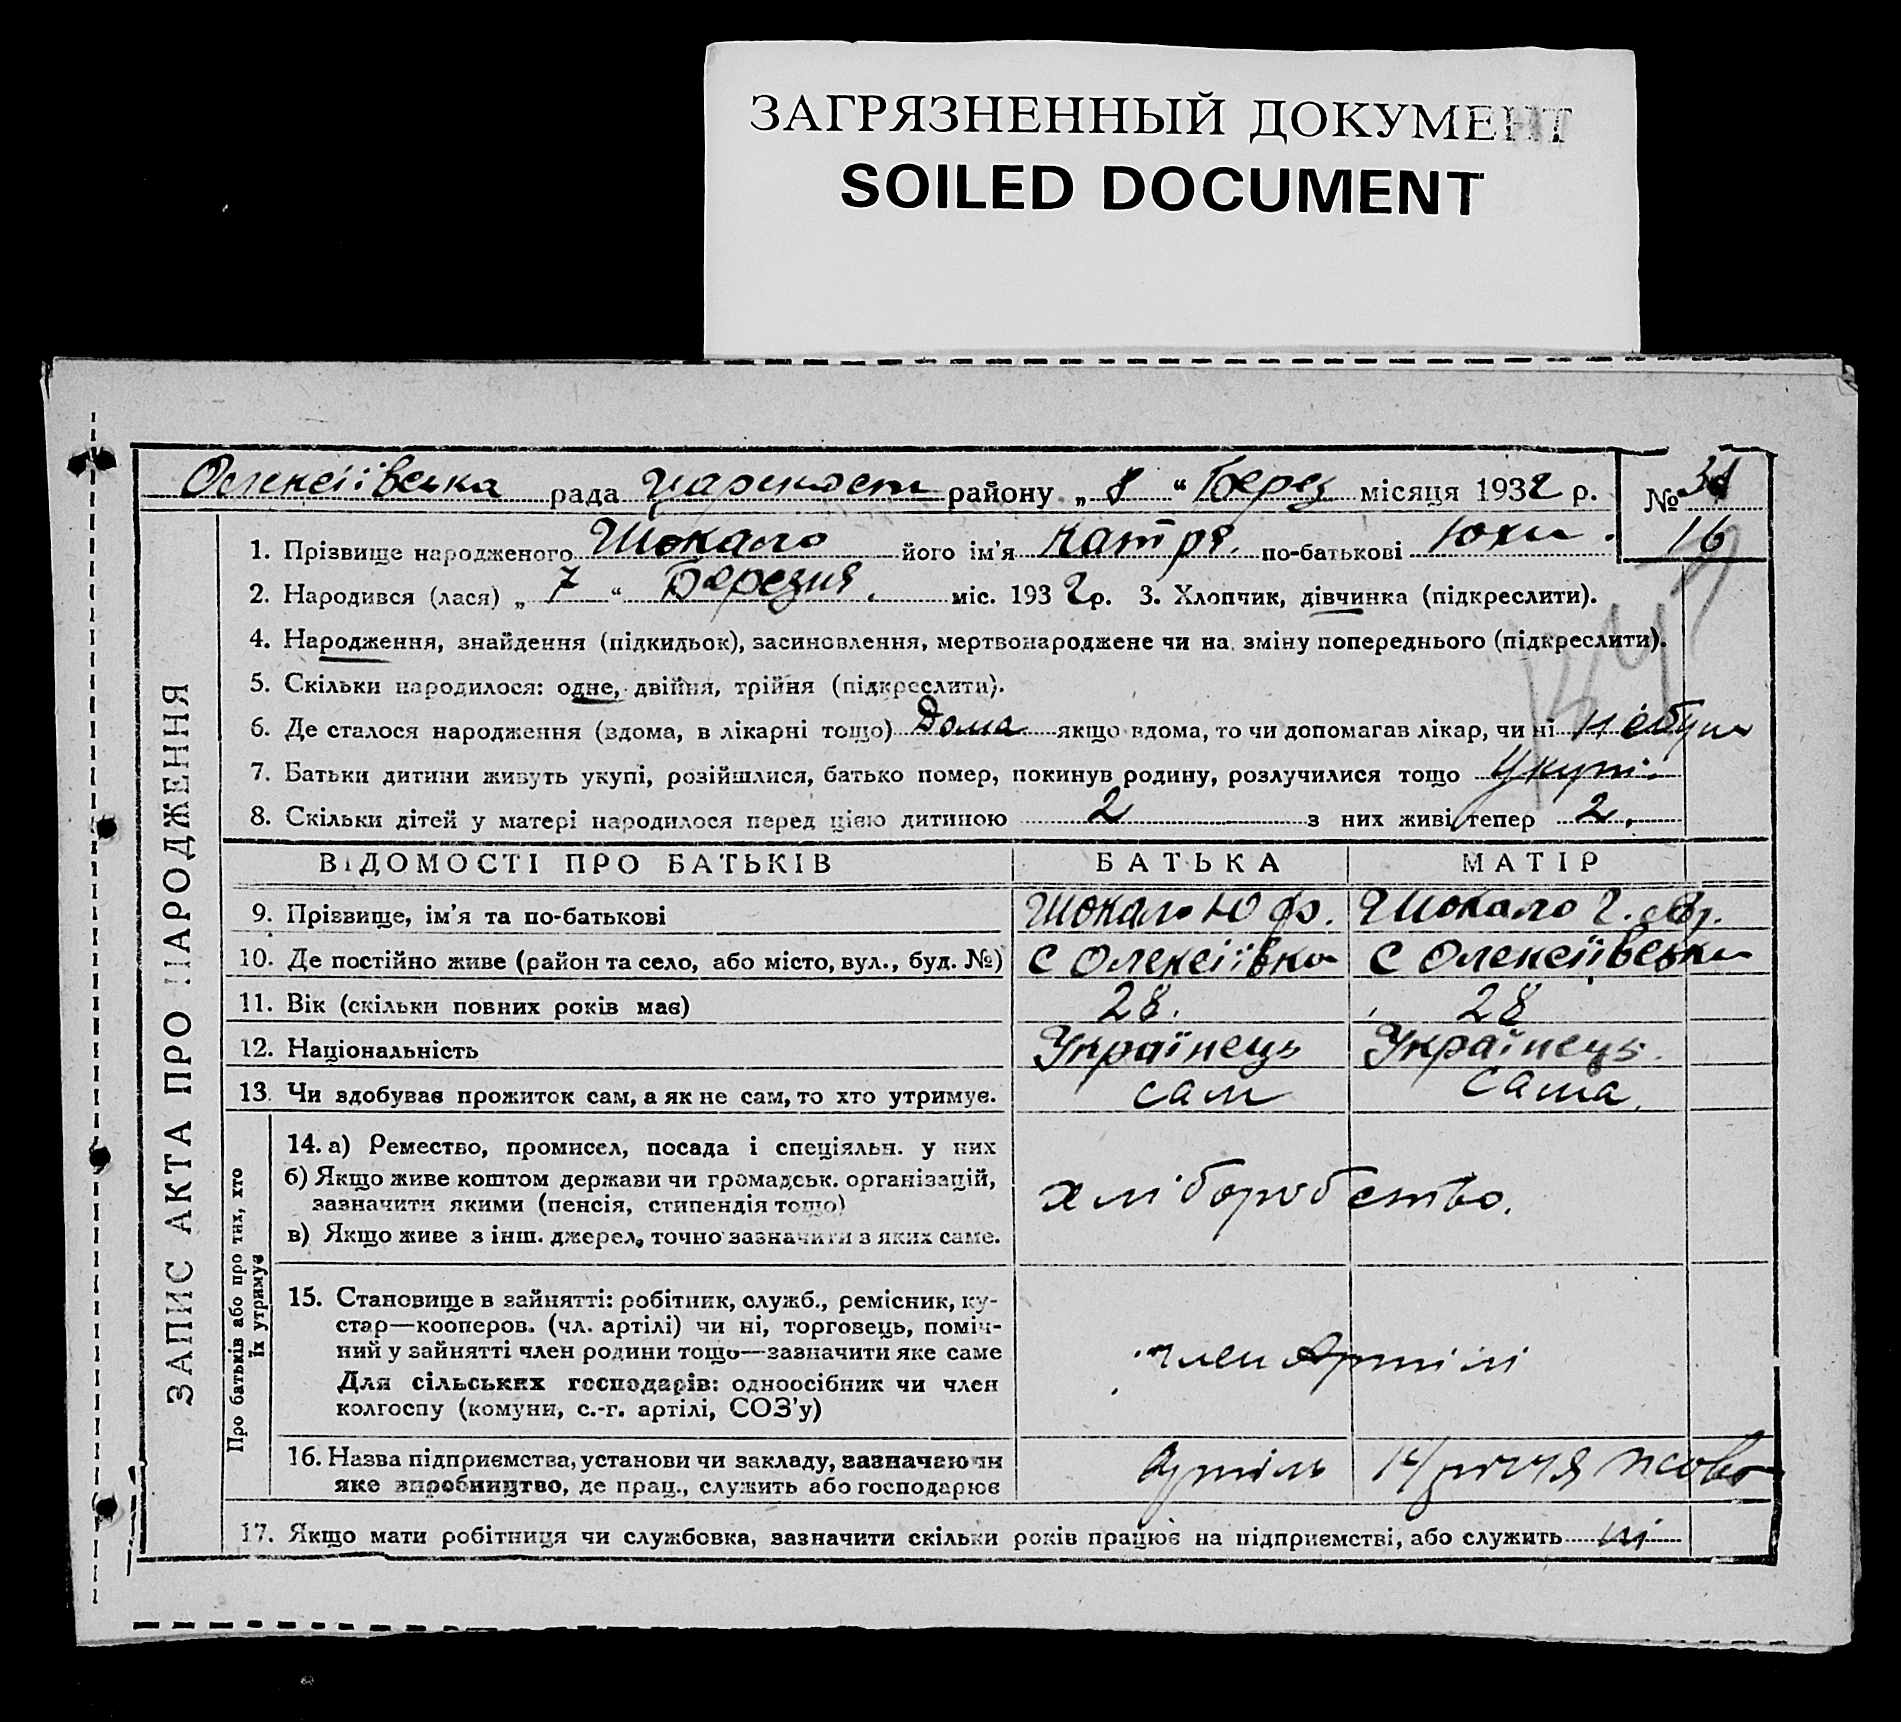 ЗАГРЯЗНЕННЫЙ ДОКУМЕНТ
SOILED DOCUMENT
Олексіївська рада район­у „ 8 “ Берез місяця 1932 р. № 
16
ЗАПИС АКТА ПРО НАРОДЖЕННЯ
1. Прізвище народженого Шокало його ім’я Катря. по-батькові Юхи.
2. Народився (лася) „ 7 “ Березня. міс. 1932 р. 3. Хлопчик, дівчинка (підкреслити).
4. Народження, знайдення (підкидьок), засиновлення, мертвонароджене чи на зміну попереднього (підкреслити).
5. Скільки народилося: одне, двійня, трійня (підкреслити).
6. Де сталося народження (вдома, в лікарні тощо) Дома якщо вдома, то чи допомагав лікар, чи ні небув
7. Батьки дитини живуть укупі, розійшлися, батько помер, покинув родину, розлучилися тощо Укупі.
8. Скільки дітей у матері народилося перед цією дитиною 2 з них живі тепер 2.
ВІДОМОСТІ ПРО БАТЬКІВ БАТЬКА МАТІР
9. Прізвище, ім’я та по-батькові Шокало Ю Ф. Шокало Г.
10. Де постійно живе (район та село, або місто, вул., буд. №) С Олексіївка С Олексіївська
11. Вік (скільки повних років має) 28. 28
12. Національність Українець Українець.
13. Чи здобуває прожиток сам, а як не сам, то хто утримує. сам сама.
Про батьків або про тих, хто
їх утримує
14. а) Ремество, промисел, посада і спеціяльн. у них
б) Якщо живе коштом держави чи громадськ. організацій,
зазначити якими (пенсія, стипендія тощо)
в) Якщо живе з інш. джерел, точно зазначити з яких саме.
хліборобство.
15. Становище в зайнятті: робітник, служб., ремісник, ку-
стар—кооперов. (чл. артілі) чи ні, торговець, поміч-
ний у зайнятті член родини тощо—зазначити яке саме
Для сільських господарів: одноосібник чи член
колгоспу (комуни, с.-г. артілі, СОЗ’у)
член Артілі
16. Назва підприємства, установи чи закладу, зазначаючи
яке виробництво, де прац., служить або господарює
Артіль 14/річчя жовт
17. Якщо мати робітниця чи службовка, зазначити скільки років працює на підприємстві, або служить ні